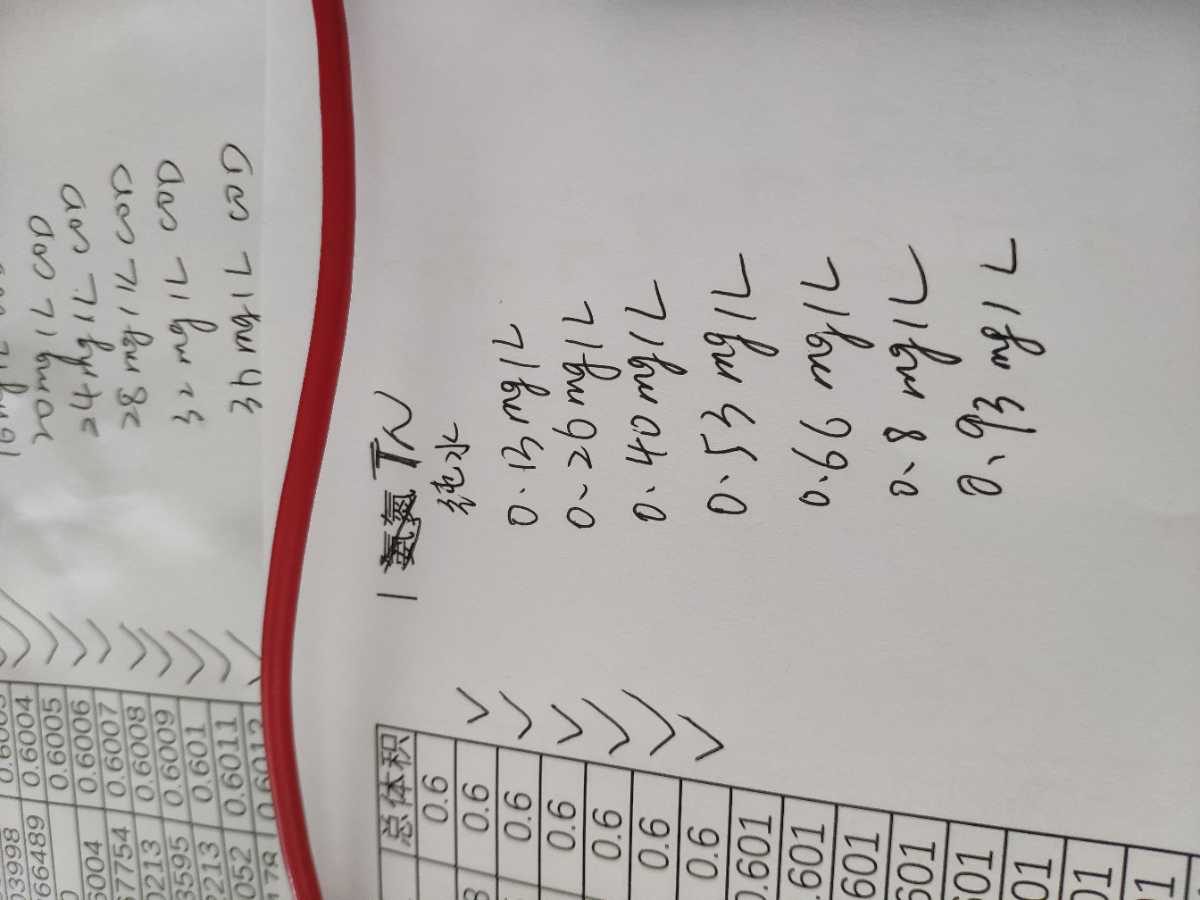 03998 0.6003
66489 0.6004 20mg/L COD
0 0.6005 24mg/L COD
6004 0.6006 28mg/L COD
77754 0.6007 32mg/L COD
0213 0.6008 34mg/L COD
3595 0.6009
2213 0.601
052 0.6011
178 0.6012
总体积
0.6
0.6
0.6
0.6
0.6
0.6
0.6
0.601
.601
601
601
01
01
01
1
1 氨氮 TN
纯水
0.13mg/L
0.26mg/L
0.40mg/L
0.53mg/L
0.66mg/L
0.8mg/L
0.93mg/L